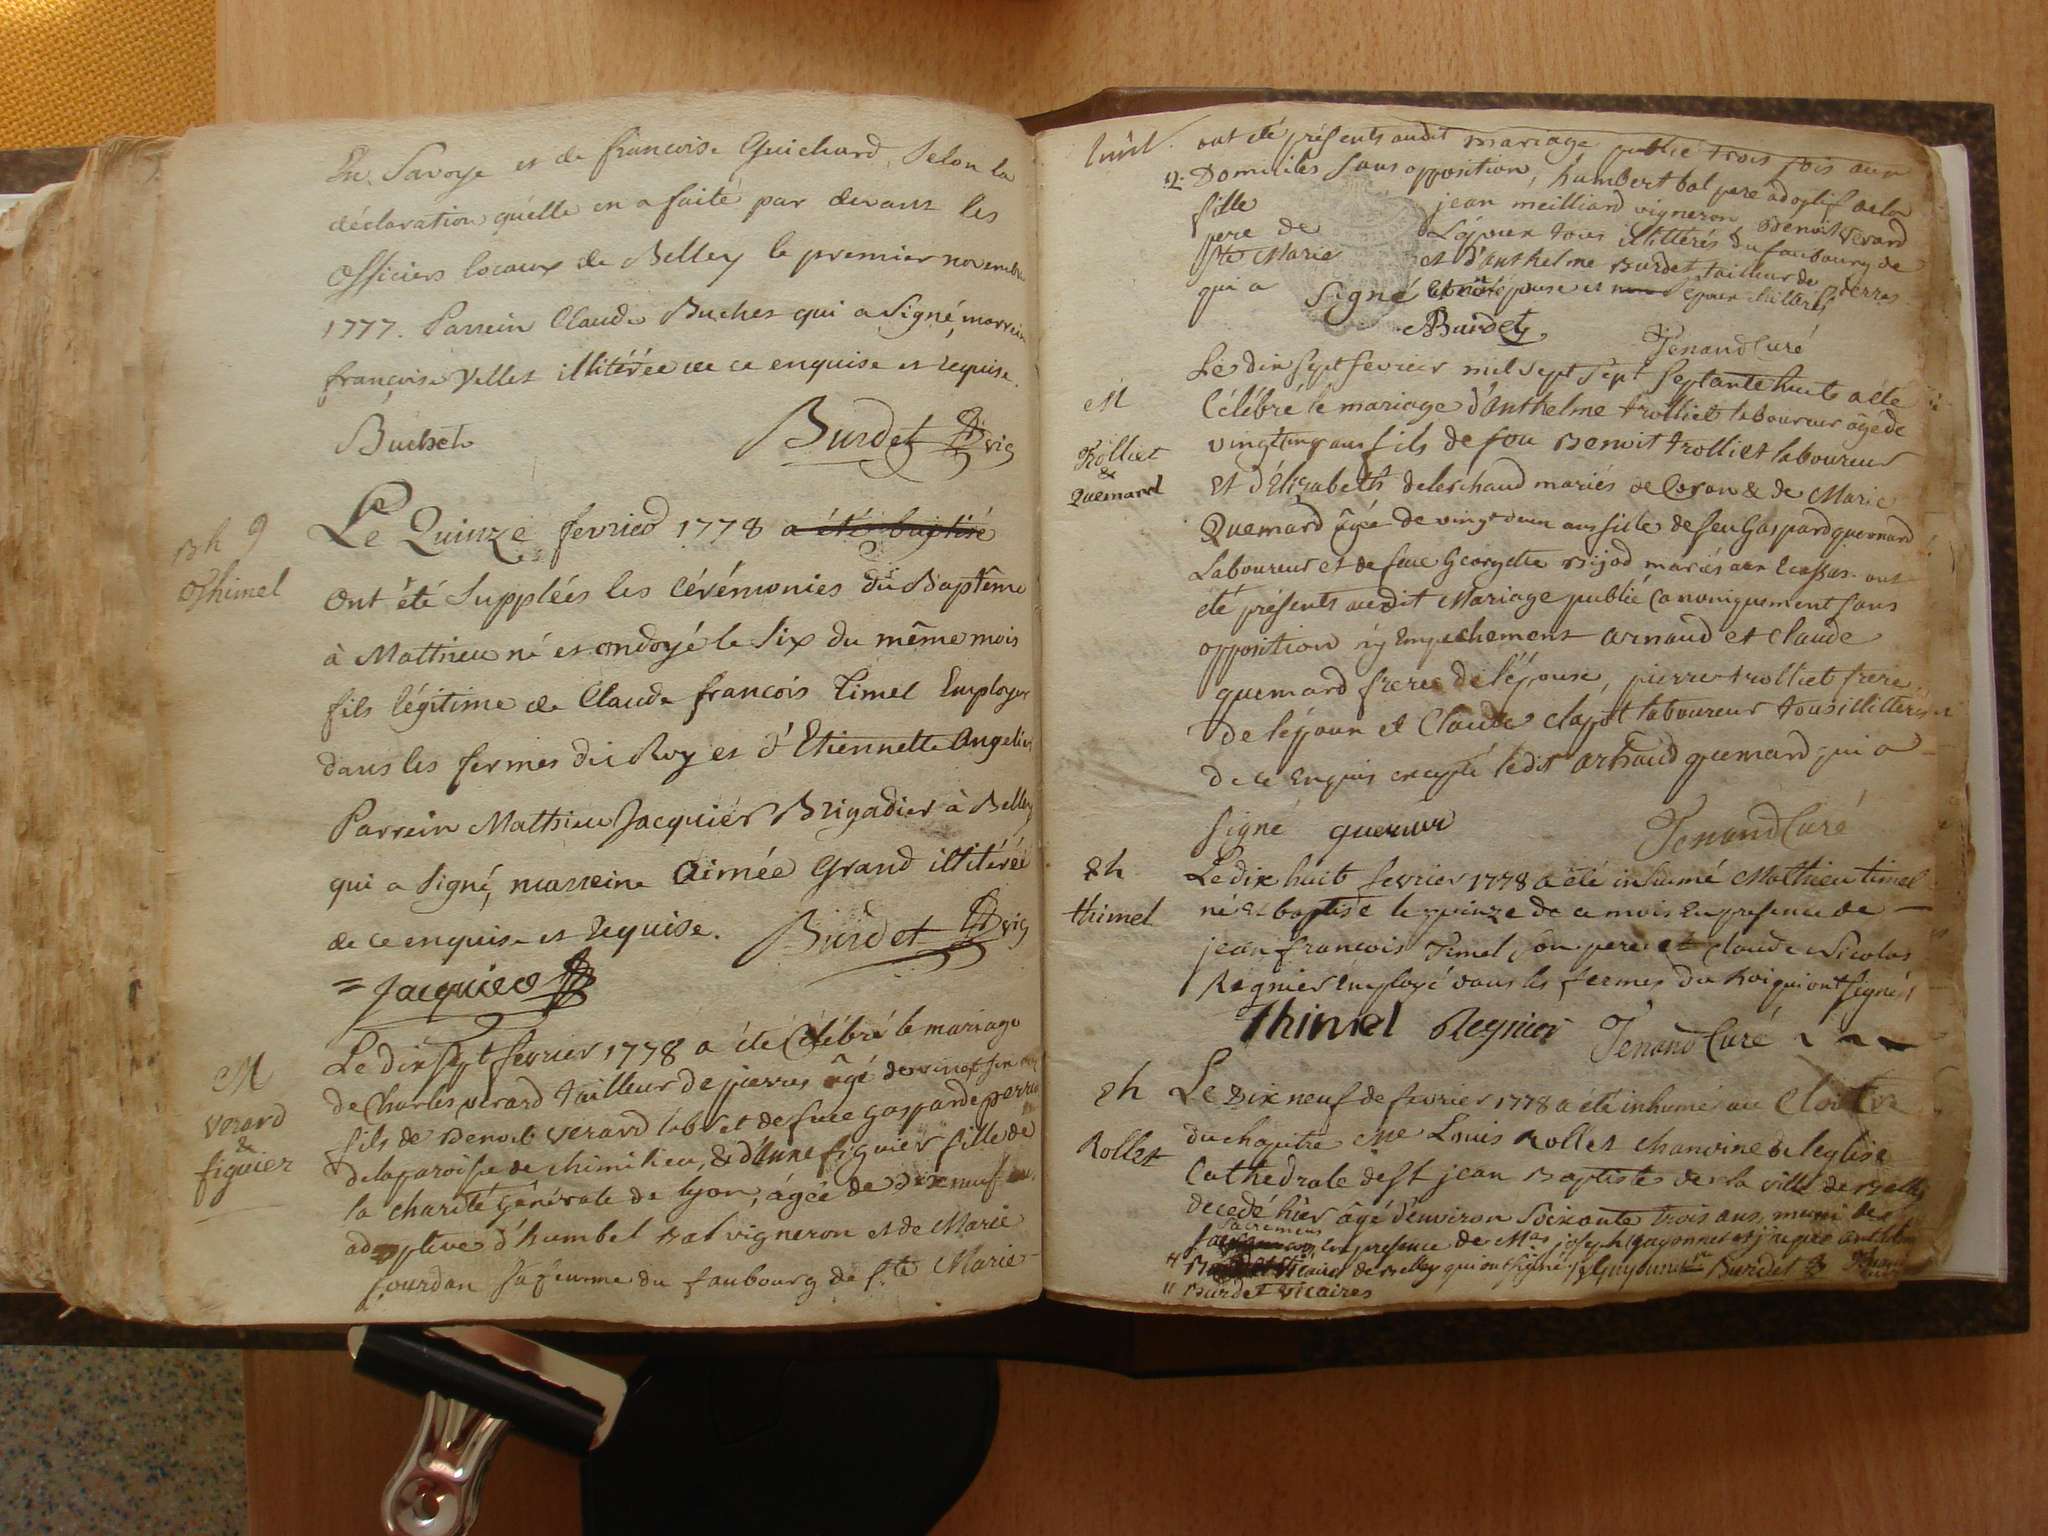 En Savoye et de francoise Guichard, Selon la
déclaration qu'elle en a faite par devant les
officiers locaux de Belley le premier novembre
1777. Parrein Claude Buchet qui a Signé, marreine
françoise Vellet illitérée de ce enquise et requise.
Buchet Burdet vic
Bh 9
Thimel
Le Quinze fevrier 1778 a été baptisé
ont été Supplées les Cérémonies du Baptême
à Mathieu né et ondoyé le Six du même mois
fils légitime de Claude françois Timel Employer
dans les fermes du Roy et d'Etiennette Angelier
Parrein Mathieu Jacquier Brigadier à Belley
qui a Signé, marreine Aimée Grand illitérée
de ce enquise et requise. Burdet vic
= Jacquier
M
verard
&
figuier
Le dix Sept fevrier 1778 a été Célébré le mariage
de Charles verard tailleur de pierres âgé de vingt
fils de Benoit verard lab. et de feue Gasparde
de la paroisse de chimilieu, & d'Anne figuier fille de
la charité générale de lyon, âgée de dix neuf ans
adoptive d'humbel bal vigneron et de Marie
jourdan sa femme du faubourg de Ste Marie
ont été présents audit mariage publié trois fois aux
Domiciles Sans opposition, humbert bal pere adoptif de la
fille jean meilliard vigneron, Benoit verard
pere de L'époux tous illittérés du faubourg de
Ste Marie et d'anthelme Burdet tailleur de pierres
qui a Signé et non l'épouse et époux illitérés
Burdet
Tenand Curé
M
Trolliet
&
Quemard
Le dix sept fevrier mil Sept Sept Septante huit a été
Célébré le mariage d'anthelme trolliet laboureur âgé de
vingt cinq ans fils de feu Benoit trolliet laboureur
et d'Elizabeth delerchaud mariés de Coron & de Marie
Quemard âgée de vingt deux ans fille de feu Gaspard quemard
Laboureur et de feue Georgette Bijod mariés aux Ecassas. ont
été présents audit Mariage publié Canoniquement Sans
opposition ny Empechement arnaud et Claude
quemard freres de l'épouse, pierre trolliet frere
de l'époux et Claude clapot laboureur tous illittérés
de ce Enquis excepté ledit arnaud quemard qui a
Signé quemar Tenand Curé
Sh
thimel
Le dix huit fevrier 1778 a été inhumé Mathieu timel
né et baptisé le quinze de ce mois En presence de
jean francois Timel son pere et Claude Nicolas
Regnier Employé dans les fermes du Roi qui ont Signés
Thimel Regnier Tenand Curé
Sh
Rollet
Le Dix neuf de fevrier 1778 a été inhumé au Cloitre
du chapitre Me Louis Rollet Chanoine de l'eglise
Cathedrale de St jean Baptiste de la ville de Belley
decedé hier âgé d'environ Soixante trois ans, muni des
Sacremens
En presence de Mrs joseph Guyonnet et
vicaires de Belley qui ont Signé. Guyonnet Burdet
" Burdet vicaires